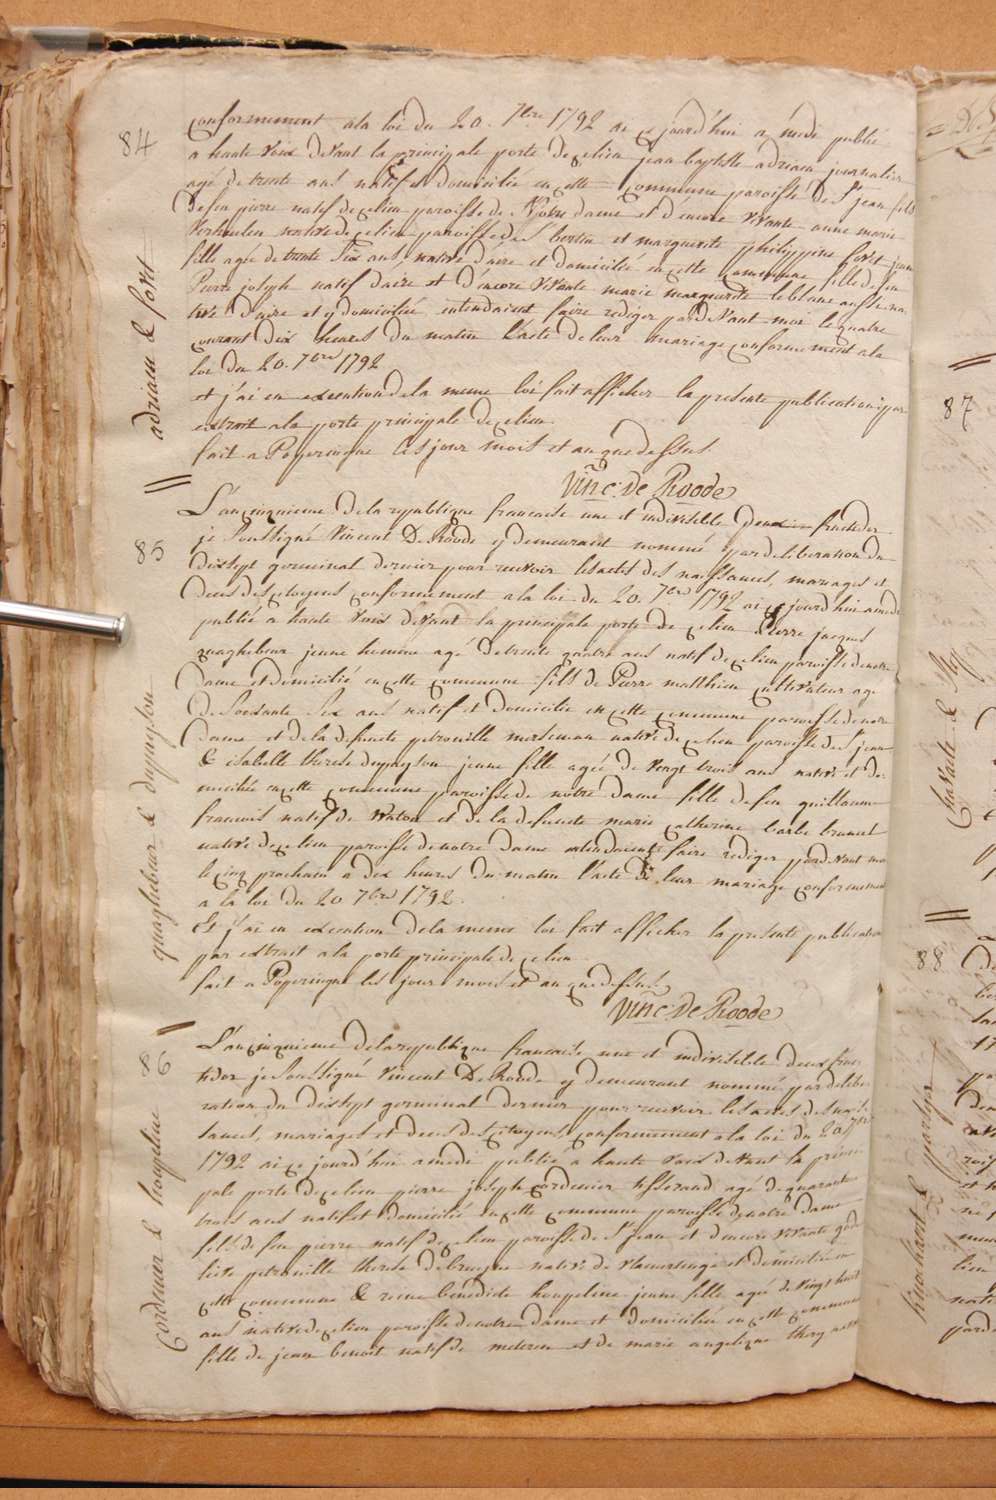 84
conformement a la loi du 20. 7bre 1792 ai ce jourd'hui a midi publié
a haute voix devant la principale porte de ce lieu jean baptiste adriaen journalier
agé de trente ans natif et domicilié en cette commune paroisse de St jean fils
de feu pierre natif de ce lieu paroisse de Notre dame et d'encore vivante anne marie
native de ce lieu paroisse de St bertin et marguerite philippine foret jeune
fille agée de trente six ans native d'aire et domiciliée en cette commune fille de feu
Pierre joseph natif d'aire et d'encore vivante marie marguerite leblanc aussi na
tive d'aire et y domiciliée entendaient faire rediger pardevant moi le quatre
courant dix heures du matin l'acte de leur mariage conformement a la
loi du 20. 7bre 1792
et j'ai en execution de la meme loi fait afficher la presente publication par
extrait a la porte principale de ce lieu
fait a Poperingue les jour mois et an que dessus
Vinc: De Roode
adriaen & foret
85
L'an cinquieme de la republique francaise une et indivisible deux fructidor
je soussigné Vincent De Roode y demeurant nommé par deliberation du
dixsept germinal dernier pour recevoir les actes des naissances, mariages et
deces des citoyens conformement a la loi du 20. 7bre 1792 ai ce jourd'hui a midi
publié a haute voix devant la principale porte de ce lieu Pierre jacques
quaghebeur jeune homme agé de trente quatre ans natif de ce lieu paroisse de notre
dame et domicilié en cette commune fils de Pierre matthieu cultivateur agé
de soixante six ans natif et domicilié en cette commune paroisse de notre
dame et de la defuncte petronille merseman native de ce lieu paroisse de St jean
& isabelle therese dupuyson jeune fille agée de vingt trois ans native et do-
miciliée en cette commune paroisse de notre dame fille de feu guillaume
francois natif de Watou et de la defuncte marie catherine barbe brunet
native de ce lieu paroisse de notre dame entendaient faire rediger pardevant moi
le cinq prochain a dix heures du matin l'acte de leur mariage conformement
a la loi du 20 7bre 1792.
Et j'ai en execution de la meme loi fait afficher la presente publication
par extrait a la porte principale de ce lieu
fait a Poperingue les jour mois et an que dessus
Vinc: De Roode
quaghebeur & dupuyson
86
L'an cinquieme de la republique francaise une et indivisible deux fruc
tidor je soussigné Vincent De Roode y demeurant nommé par delibe
ration du dixsept germinal dernier pour recevoir les actes des nais
sances, mariages et deces des citoyens conformement a la loi du 20 7bre
1792 ai ce jourd'hui a midi publié a haute voix devant la princi
pale porte de ce lieu pierre joseph cordenier tisserand agé de quarante
trois ans natif et domicilié en cette commune paroisse de notre dame
fils de feu pierre natif de ce lieu paroisse de St jean et d'encore vivante gode
lieve petronille therese debruyne native de vlamertinge et domiciliée en
cette commune & reine benedicte houpeline jeune fille agée de vingt huit
ans native de ce lieu paroisse de notre dame et domiciliée en cette commune
fille de jean benoit natif de meteren et de marie angelique thery native
Cordenier & houpeline
87
88